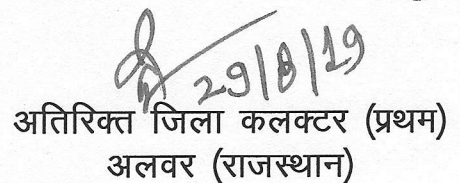 29/8/19
अतिरिक्त जिला कलक्टर (प्रथम)
अलवर (राजस्थान)